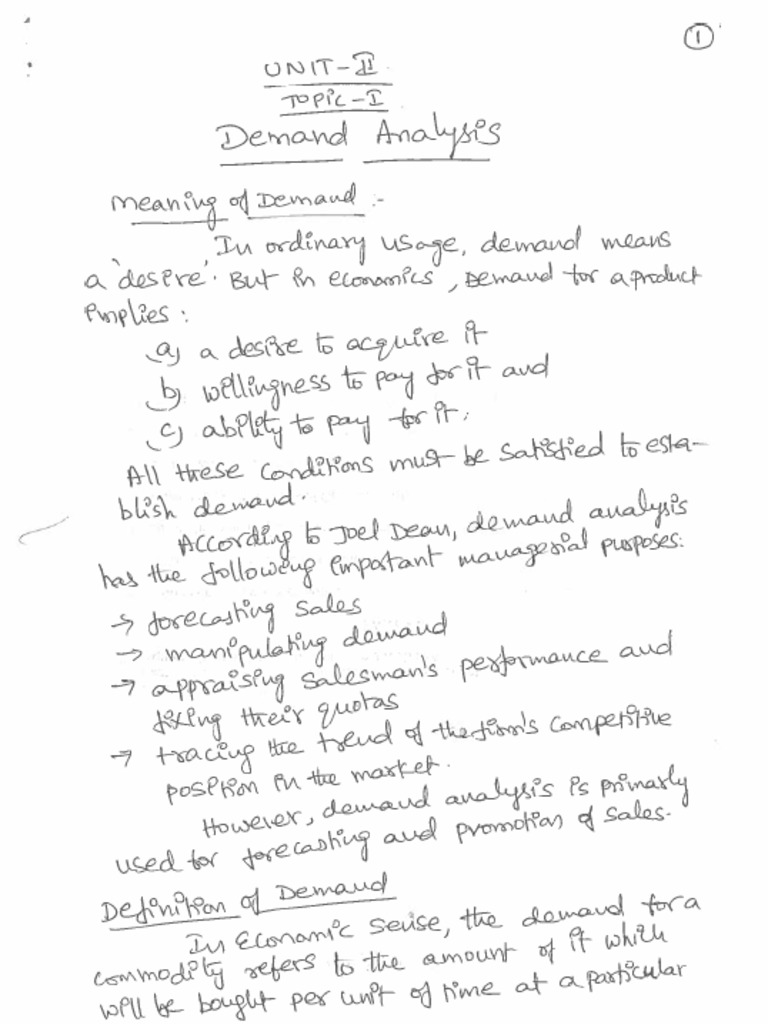 1
UNIT-II
TOPIC-I
Demand Analysis
Meaning of Demand :-
In ordinary usage, demand means
a 'desire'. But in economics, Demand for a product
implies :
(a) a desire to acquire it
(b) willingness to pay for it and
(c) ability to pay for it.
All these conditions must be satisfied to esta-
blish demand.
According to Joel Dean, demand analysis
has the following important managerial purposes:
→ forecasting sales
→ manipulating demand
→ appraising salesman's performance and
fixing their quotas
→ tracing the trend of the firm's competitive
position in the market.
However, demand analysis is primarly
used for forecasting and promotion of sales.
Definition of Demand
In Economic sense, the demand for a
commodity refers to the amount of it which
will be bought per unit of time at a particular